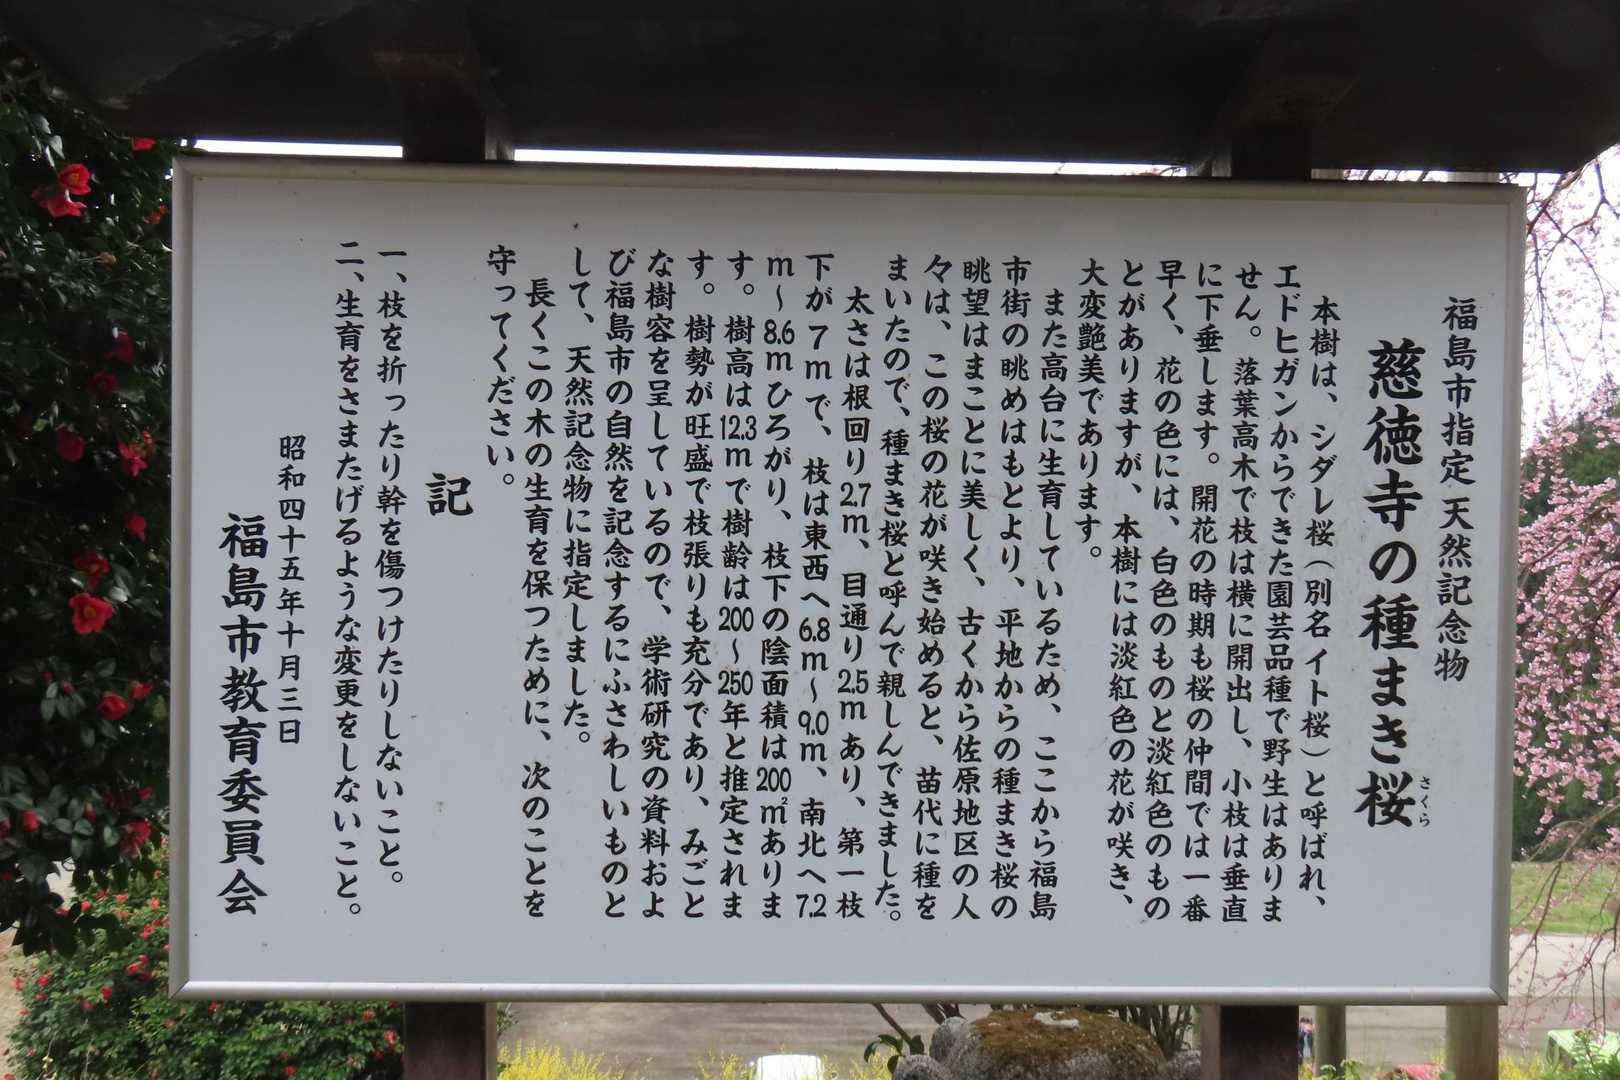 福島市指定天然記念物
慈徳寺の種まき桜
さくら
本樹は、シダレ桜（別名イト桜）と呼ばれ、
エドヒガンからできた園芸品種で野生はありま
せん。落葉高木で枝は横に開出し、小枝は垂直
に下垂します。開花の時期も桜の仲間では一番
早く、花の色には、白色のものと淡紅色のもの
とがありますが、本樹には淡紅色の花が咲き、
大変艶美であります。
また高台に生育しているため、ここから福島
市街の眺めはもとより、平地からの種まき桜の
眺望はまことに美しく、古くから佐原地区の人
々は、この桜の花が咲き始めると、苗代に種を
まいたので、種まき桜と呼んで親しんできました。
太さは根回り2.7m、目通り2.5mあり、第一枝
下が7mで、枝は東西へ6.8m〜9.0m、南北へ7.2
m〜8.6mひろがり、枝下の陰面積は200㎡ありま
す。樹高は12.3mで樹齢は200〜250年と推定されま
す。樹勢が旺盛で枝張りも充分であり、みごと
な樹容を呈しているので、学術研究の資料およ
び福島市の自然を記念するにふさわしいものと
して、天然記念物に指定しました。
長くこの木の生育を保つために、次のことを
守ってください。
記
一、枝を折ったり幹を傷つけたりしないこと。
二、生育をさまたげるような変更をしないこと。
昭和四十五年十月三日
福島市教育委員会